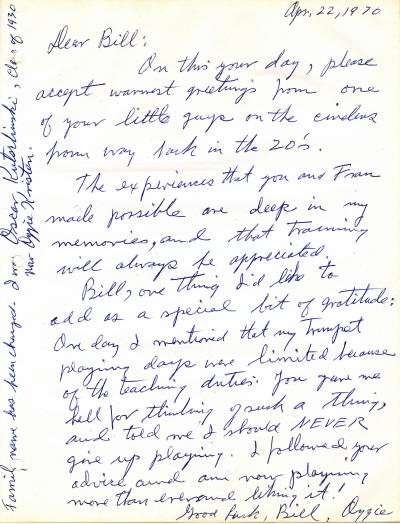 Apr. 22, 1970
Dear Bill:
On this your day, please
accept warmest greetings from one
of your little guys on the cinders
from way back in the 20's.
The experiences that you and Fran
made possible are deep in my
memories, and that training
will always be appreciated.
Bill, one thing I'd like to
add as a special bit of gratitude:
One day I mentioned that my trumpet
playing days were limited because
of the teaching duties. You gave me
hell for thinking of such a thing,
and told me I should NEVER
give up playing. I followed your
advice and am now playing
more than ever and liking it!
Good luck, Bill, Oggie
Family name has been changed. I was Oscar, Class of 1930
now Oggie